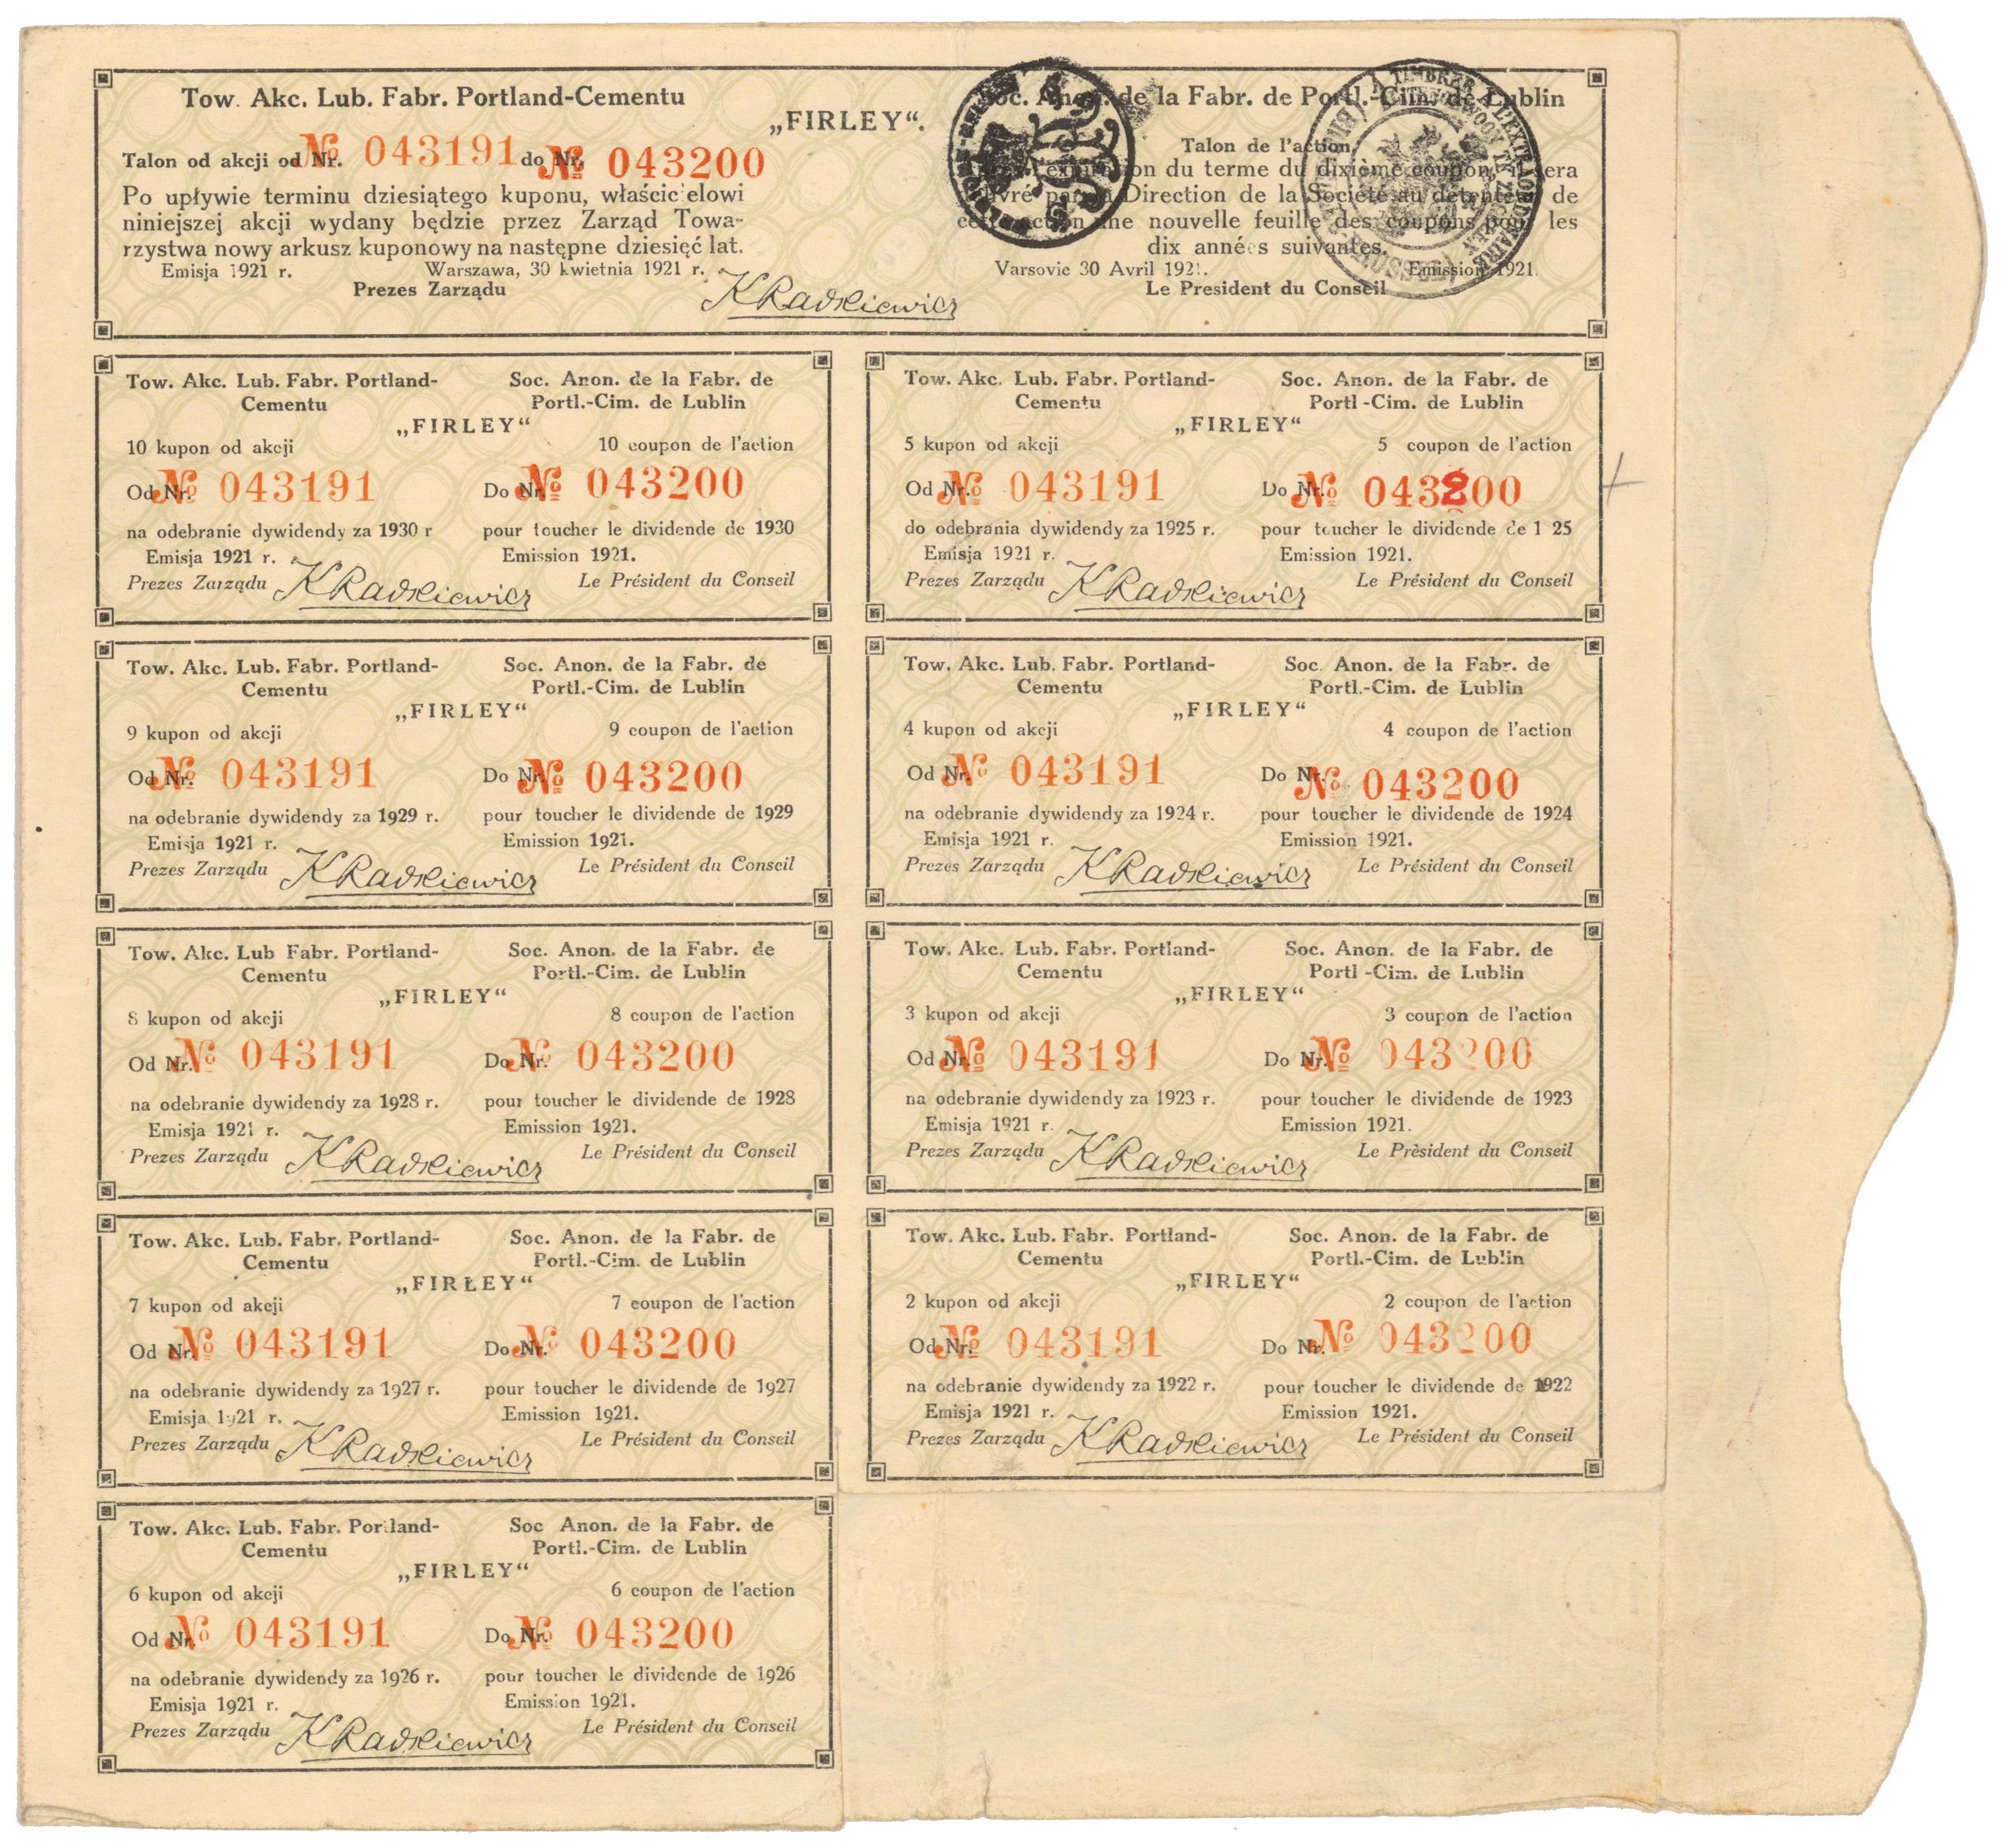 Tow. Akc. Lub. Fabr. Portland-Cementu
„FIRLEY“.
Talon od akcji od Nr. № 043191 do Nr. № 043200
Po upływie terminu dziesiątego kuponu, właścicielowi
niniejszej akcji wydany będzie przez Zarząd Towa-
rzystwa nowy arkusz kuponowy na następne dziesięć lat.
Emisja 1921 r. Warszawa, 30 kwietnia 1921 r.
Prezes Zarządu KRadkiewicz
Soc. Anon. de la Fabr. de Portl.-Cim. de Lublin
Talon de l'action.
du terme du dixième coupon, il sera
Direction de la Société au détenteur de
une nouvelle feuille des coupons pour les
dix années suivantes.
Varsovie 30 Avril 1921. Emission 1921.
Le President du Conseil
Tow. Akc. Lub. Fabr. Portland- Soc. Anon. de la Fabr. de
Cementu Portl.-Cim. de Lublin
„FIRLEY“
10 kupon od akcji 10 coupon de l'action
Od Nr. № 043191 Do Nr. № 043200
na odebranie dywidendy za 1930 r pour toucher le dividende de 1930
Emisja 1921 r. Emission 1921.
Prezes Zarządu KRadkiewicz Le Président du Conseil
Tow. Akc. Lub. Fabr. Portland- Soc. Anon. de la Fabr. de
Cementu Portl.-Cim. de Lublin
„FIRLEY“
9 kupon od akcji 9 coupon de l'action
Od Nr. № 043191 Do Nr. № 043200
na odebranie dywidendy za 1929 r. pour toucher le dividende de 1929
Emisja 1921 r. Emission 1921.
Prezes Zarządu KRadkiewicz Le Président du Conseil
Tow. Akc. Lub Fabr. Portland- Soc. Anon. de la Fabr. de
Cementu Portl.-Cim. de Lublin
„FIRLEY“
8 kupon od akcji 8 coupon de l'action
Od Nr. № 043191 Do Nr. № 043200
na odebranie dywidendy za 1928 r. pour toucher le dividende de 1928
Emisja 1921 r. Emission 1921.
Prezes Zarządu KRadkiewicz Le Président du Conseil
Tow. Akc. Lub. Fabr. Portland- Soc. Anon. de la Fabr. de
Cementu Portl.-Cim. de Lublin
„FIRLEY“
7 kupon od akcji 7 coupon de l'action
Od Nr. № 043191 Do Nr. № 043200
na odebranie dywidendy za 1927 r. pour toucher le dividende de 1927
Emisja 1921 r. Emission 1921.
Prezes Zarządu KRadkiewicz Le Président du Conseil
Tow. Akc. Lub. Fabr. Portland- Soc Anon. de la Fabr. de
Cementu Portl.-Cim. de Lublin
„FIRLEY“
6 kupon od akcji 6 coupon de l'action
Od Nr. № 043191 Do Nr. № 043200
na odebranie dywidendy za 1926 r. pour toucher le dividende de 1926
Emisja 1921 r. Emission 1921.
Prezes Zarządu KRadkiewicz Le Président du Conseil
Tow. Akc. Lub. Fabr. Portland- Soc. Anon. de la Fabr. de
Cementu Portl -Cim. de Lublin
„FIRLEY“
5 kupon od akcji 5 coupon de l'action
Od Nr. № 043191 Do Nr. № 043200
do odebrania dywidendy za 1925 r. pour toucher le dividende de 1 25
Emisja 1921 r. Emission 1921.
Prezes Zarządu KRadkiewicz Le Président du Conseil
Tow. Akc. Lub. Fabr. Portland- Soc. Anon. de la Fabr. de
Cementu Portl.-Cim. de Lublin
„FIRLEY“
4 kupon od akcji 4 coupon de l'action
Od Nr. № 043191 Do Nr. № 043200
na odebranie dywidendy za 1924 r. pour toucher le dividende de 1924
Emisja 1921 r. Emission 1921.
Prezes Zarządu KRadkiewicz Le Président du Conseil
Tow. Akc. Lub. Fabr. Portland- Soc. Anon. de la Fabr. de
Cementu Portl -Cim. de Lublin
„FIRLEY“
3 kupon od akcji 3 coupon de l'action
Od Nr. № 043191 Do Nr. № 043200
na odebranie dywidendy za 1923 r. pour toucher le dividende de 1923
Emisja 1921 r. Emission 1921.
Prezes Zarządu KRadkiewicz Le Président du Conseil
Tow. Akc. Lub. Fabr. Portland- Soc. Anon. de la Fabr. de
Cementu Portl.-Cim. de Lublin
„FIRLEY“
2 kupon od akcji 2 coupon de l'action
Od Nr. № 043191 Do Nr. № 043200
na odebranie dywidendy za 1922 r. pour toucher le dividende de 1922
Emisja 1921 r. Emission 1921.
Prezes Zarządu KRadkiewicz Le Président du Conseil